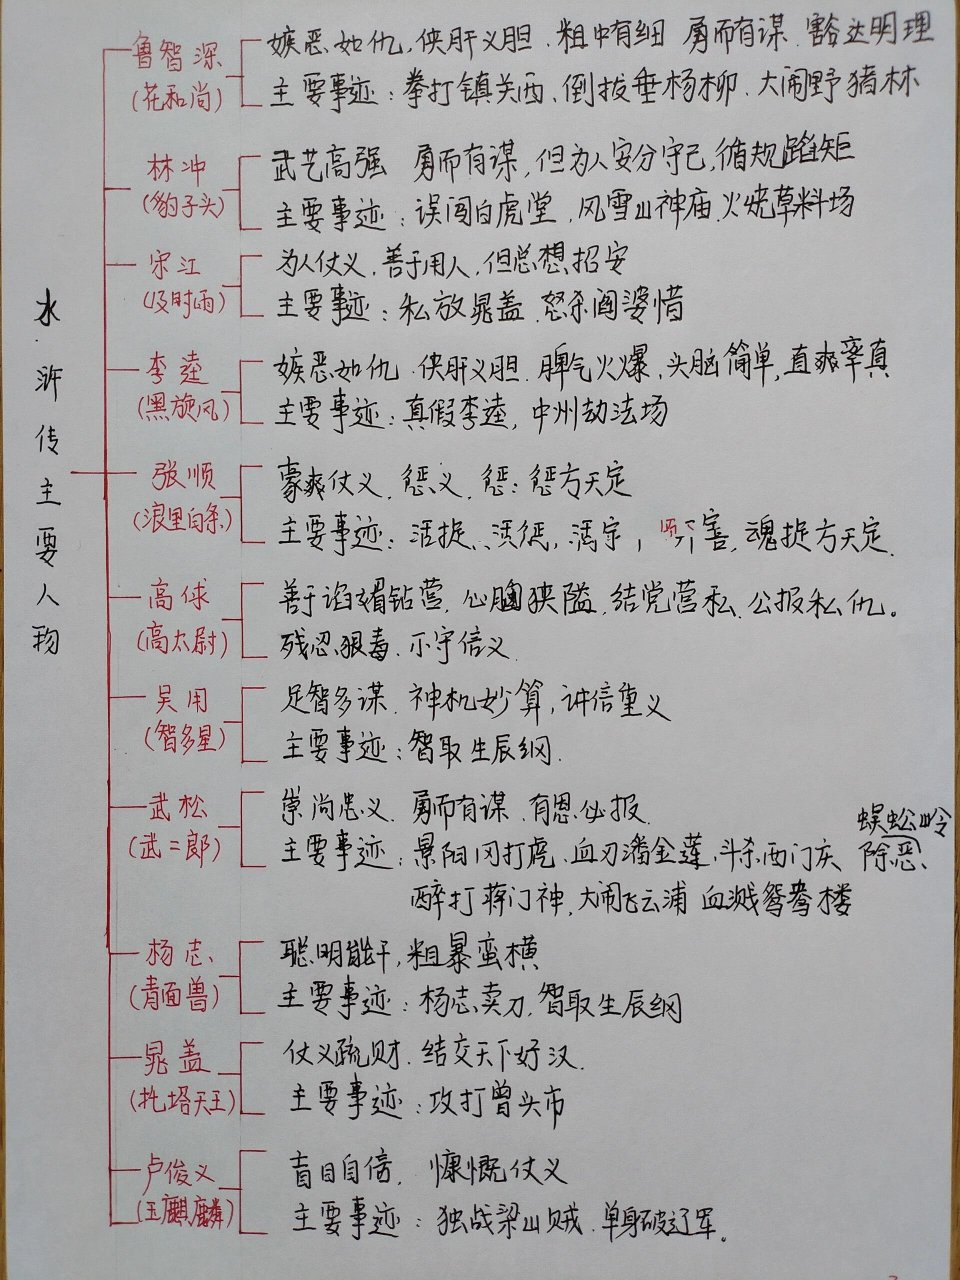 水浒传主要人物
鲁智深
(花和尚)
嫉恶如仇,侠肝义胆、粗中有细 勇而有谋、豁达明理
主要事迹:拳打镇关西、倒拔垂杨柳、大闹野猪林
林冲
(豹子头)
武艺高强 勇而有谋,但为人安分守己,循规蹈矩
主要事迹:误闯白虎堂、风雪山神庙、火烧草料场
宋江
(及时雨)
为人仗义、善于用人,但总想招安
主要事迹:私放晁盖、怒杀阎婆惜
李逵
(黑旋风)
嫉恶如仇、侠肝义胆、脾气火爆、头脑简单,直爽率真
主要事迹:真假李逵,中州劫法场
张顺
(浪里白条)
豪爽仗义、惩义、惩:惩方天定
主要事迹:活捉、活惩,活字, 害,魂捉方天定、
高俅
(高太尉)
善于谄媚钻营、心胸狭隘、结党营私、公报私仇。
残忍狠毒、不守信义、
吴用
(智多星)
足智多谋、神机妙算,讲信重义
主要事迹:智取生辰纲、
武松
(武二郎)
崇尚忠义、勇而有谋、有恩必报、
主要事迹:景阳冈打虎、血刃潘金莲、斗杀西门庆 蜈蚣岭除恶、
醉打蒋门神,大闹飞云浦 血溅鸳鸯楼
杨志
(青面兽)
聪明能干,粗暴蛮横
主要事迹:杨志卖刀,智取生辰纲
晁盖
(托塔天王)
仗义疏财、结交天下好汉、
主要事迹:攻打曾头市
卢俊义
(玉麒麟)
盲目自信、慷慨仗义
主要事迹:独战梁山贼、单身破辽军。